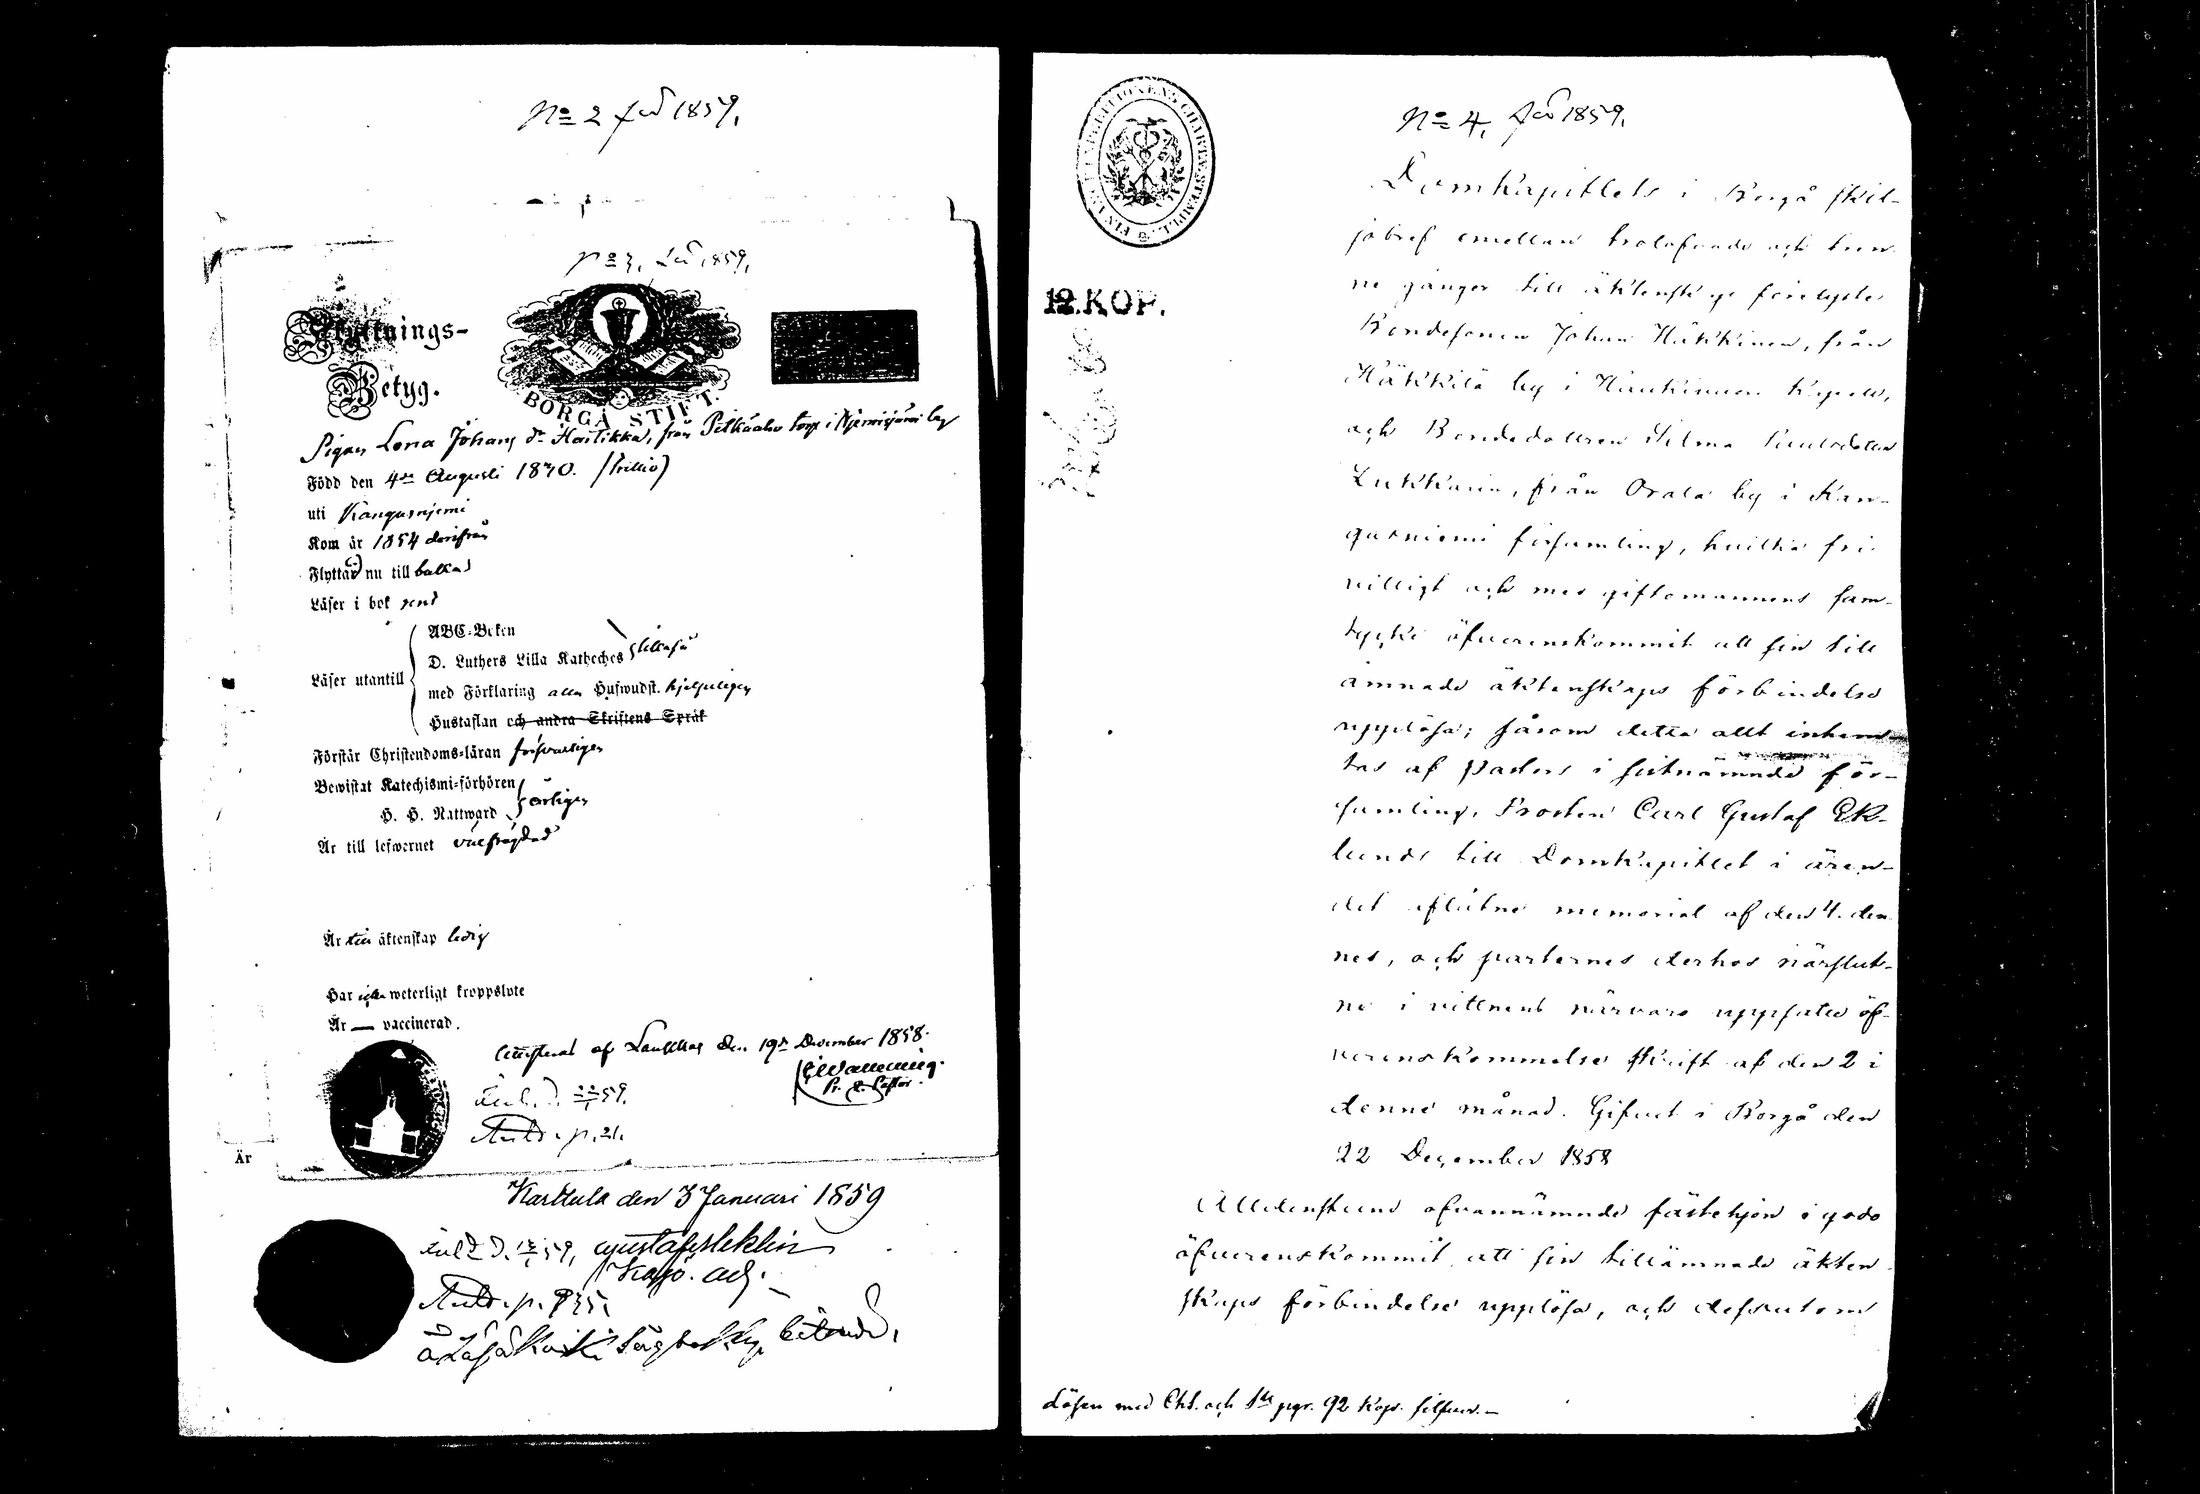 No 2 1859.
No 3. 1859.
Flyttnings-
Betyg.
BORGÅ STIFT.
Pigan Lena Johans dr Hartikka, från Pitkäaho torp i Njemisjärvi by
Född den 4de Augusti 1830.
uti Kangasnjemi
Kom år 1854 derifrån
Flyttar nu till baka
Läser i bok rent
Läser utantill
ABC-Boken
D. Luthers Lilla Katheches
med Förklaring alla Hufwudst. hjelpeligen
Hustaflan och andra Skriftens Språk
Förstår Christendoms-läran försvarligen
Bewistat Katechismi-förhören
H. H. Nattward årligen
Är till lefwernet välfrägdad
Är till äktenskap ledig
Har icke weterligt kroppslyte
Är — vaccinerad.
Attesterat af Laukkas den 19de December 1858.
Pr. Pastor.
59.
p. 21.
Är
Karttula den 3 Januari 1859
59, Gustaf
Kapp. adj.
p. 935.
No 4. 1859.
12. KOP.
Domkapitlets i Borgå skil-
jobref emellan trolofvade och tren-
ne gånger till äktenskap förelyste
Bondesonen Johan Häkkinen, från
Häkkilä by i Hankasalmi Kapell,
och Bondedottren Hilma Paulsdotter
Lukkarin, från Orala by i Kan-
gasniemi församling, hvilka fri-
villigt och med giftomannens sam-
tycke öfverenskommit att sin till
ämnade äktenskaps förbindelse
upplösa; såsom detta allt inhem-
tas af Pastors i sistnämnde för-
samling, Prosten Carl Gustaf Ek-
lunds till Domkapitlet i ären-
det aflåtne memorial af den 4. den-
nes, och parternes derhos närslut-
ne i vittnens närvaro uppsatte öf-
verenskommelse skrift af den 2 i
denne månad. Gifvet i Borgå den
22 December 1858
Alldenstund ofvannämnde fästehjon i godo
öfverenskommit att sin tillämnade äkten-
skaps förbindelse upplösa, och dessutom
Lösen med Cht. och 1 ppr. 92 Kop. silfver.—